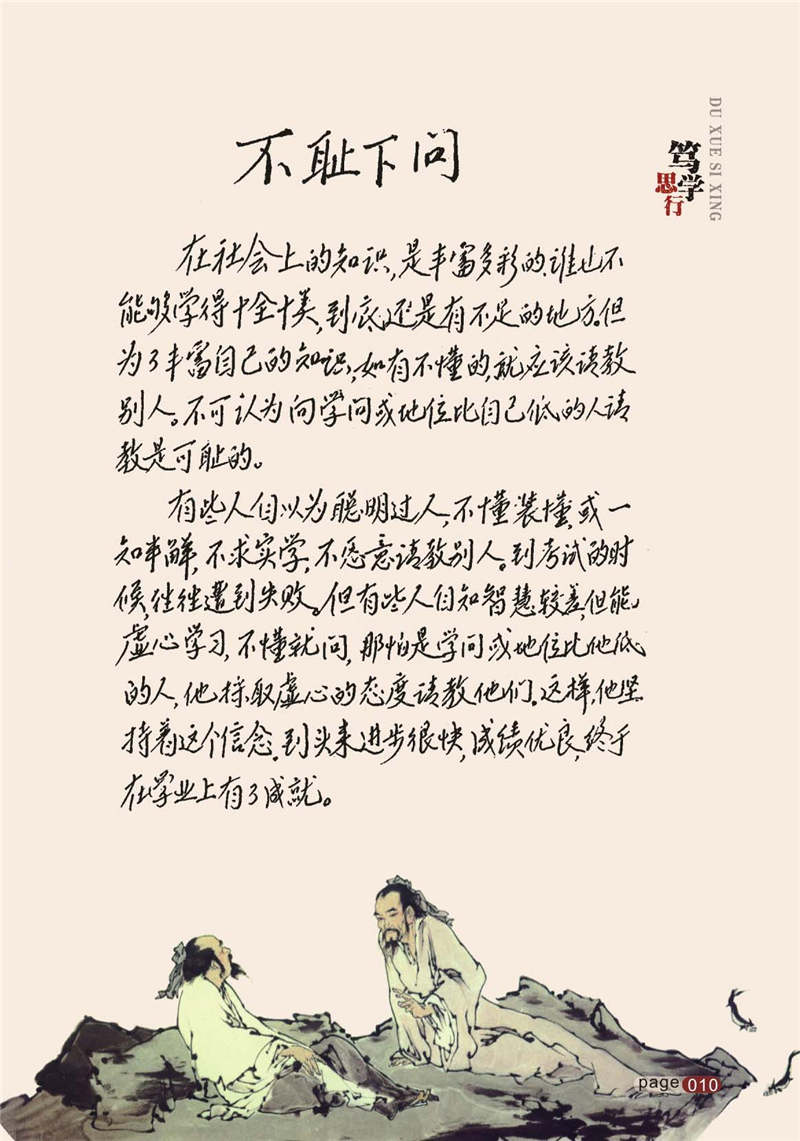 不耻下问
DU XUE SI XING
笃学
思行
在社会上的知识，是丰富多彩的，谁也不
能够学得十全十美，到底还是有不足的地方。但
为了丰富自己的知识，如有不懂的，就应该请教
别人。不可认为向学问或地位比自己低的人请
教是可耻的。
有些人自以为聪明过人，不懂装懂，或一
知半解，不求实学，不愿意请教别人。到考试的时
候，往往遭到失败。但有些人自知智慧较差，但能
虚心学习，不懂就问，那怕是学问或地位比他低
的人，他採取虚心的态度请教他们。这样，他坚
持着这个信念，到头来进步很快，成绩优良，终于
在学业上有了成就。
page 010